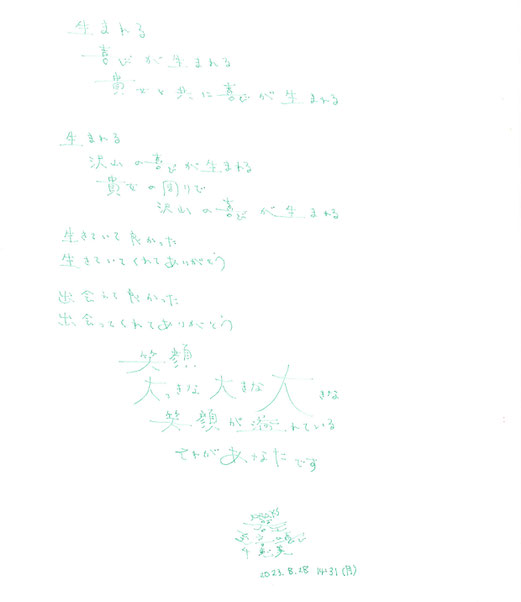 生まれる
喜びが生まれる
貴女と共に喜びが生まれる
生まれる
沢山の喜びが生まれる
貴女の回りで
沢山の喜びが生まれる
生きていて良かった
生きていてくれてありがとう
出会えて良かった
出会ってくれてありがとう
笑顔
大っきな 大きな 大きな
笑顔が溢れている
それがあなたです
2023.8.28 14:31(月)